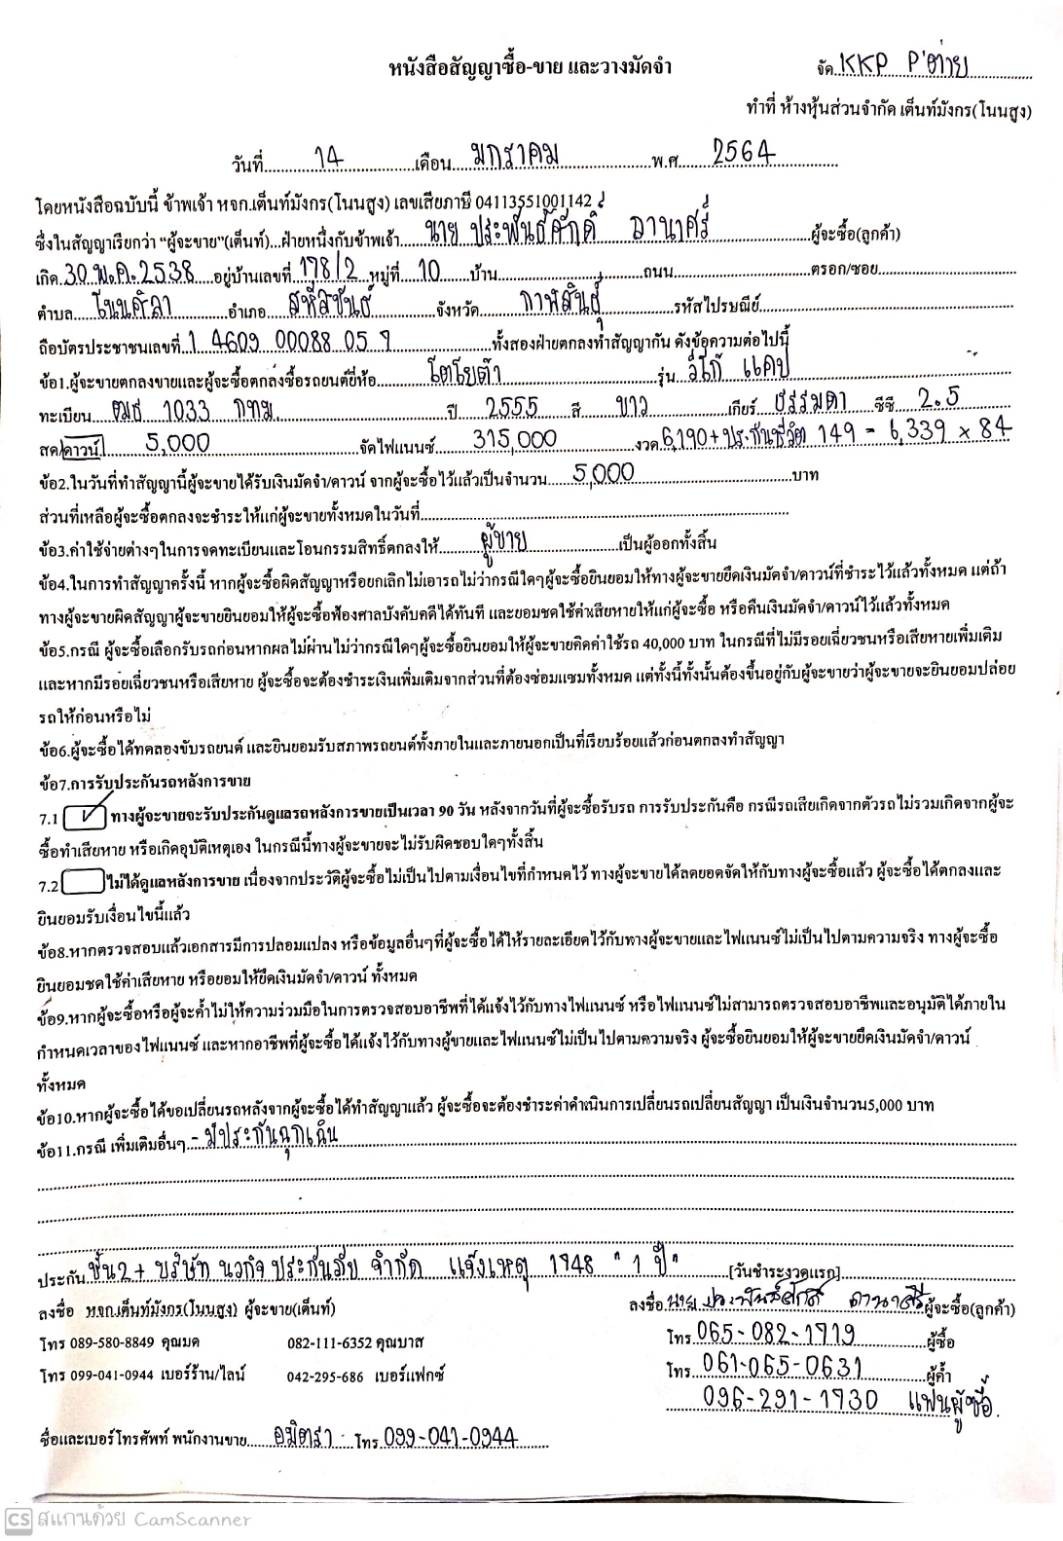 หนังสือสัญญาซื้อ-ขาย และวางมัดจำ
จัด KKP P'ต่าย
ทำที่ ห้างหุ้นส่วนจำกัด เต็นท์มังกร(โนนสูง)
วันที่ 14 เดือน มกราคม พ.ศ 2564
โดยหนังสือฉบับนี้ ข้าพเจ้า หจก.เต็นท์มังกร(โนนสูง) เลขเสียภาษี 04113551001142
ซึ่งในสัญญาเรียกว่า "ผู้จะขาย"(เต็นท์)...ฝ่ายหนึ่งกับข้าพเจ้า นาย ประพันธ์ศักดิ์ ดานาศรี ผู้จะซื้อ(ลูกค้า)
เกิด 30 พ.ค. 2538 อยู่บ้านเลขที่ 178/2 หมู่ที่ 10 บ้าน ถนน ตรอก/ซอย
ตำบล โนนศิลา อำเภอ สหัสขันธ์ จังหวัด กาฬสินธุ์ รหัสไปรษณีย์
ถือบัตรประชาชนเลขที่ 1 4609 00088 05 9 ทั้งสองฝ่ายตกลงทำสัญญากัน ดังข้อความต่อไปนี้
ข้อ1.ผู้จะขายตกลงขายและผู้จะซื้อตกลงซื้อรถยนต์ยี่ห้อ โตโยต้า รุ่น วีโก้ แคป
ทะเบียน ฒธ 1033 กทม ปี 2555 สี ขาว เกียร์ ธรรมดา ซีซี 2.5
สด/ดาวน์ 5,000 จัดไฟแนนซ์ 315,000 งวด 6,190 + ประกันชีวิต 149 = 6,339 x 84
ข้อ2.ในวันที่ทำสัญญานี้ผู้จะขายได้รับเงินมัดจำ/ดาวน์ จากผู้จะซื้อไว้แล้วเป็นจำนวน 5,000 บาท
ส่วนที่เหลือผู้จะซื้อตกลงจะชำระให้แก่ผู้จะขายทั้งหมดในวันที่
ข้อ3.ค่าใช้จ่ายต่างๆในการจดทะเบียนและโอนกรรมสิทธิ์ตกลงให้ ผู้ขาย เป็นผู้ออกทั้งสิ้น
ข้อ4.ในการทำสัญญาครั้งนี้ หากผู้จะซื้อผิดสัญญาหรือยกเลิกไม่เอารถไม่ว่ากรณีใดๆผู้จะซื้อยินยอมให้ทางผู้จะขายยึดเงินมัดจำ/ดาวน์ที่ชำระไว้แล้วทั้งหมด แต่ถ้า
ทางผู้จะขายผิดสัญญาผู้จะขายยินยอมให้ผู้จะซื้อฟ้องศาลบังคับคดีได้ทันที และยอมชดใช้ค่าเสียหายให้แก่ผู้จะซื้อ หรือคืนเงินมัดจำ/ดาวน์ไว้แล้วทั้งหมด
ข้อ5.กรณี ผู้จะซื้อเลือกรับรถก่อนหากผลไม่ผ่านไม่ว่ากรณีใดๆผู้จะซื้อยินยอมให้ผู้จะขายคิดค่าใช้รถ 40,000 บาท ในกรณีที่ไม่มีรอยเฉี่ยวชนหรือเสียหายเพิ่มเติม
และหากมีรอยเฉี่ยวชนหรือเสียหาย ผู้จะซื้อจะต้องชำระเงินเพิ่มเติมจากส่วนที่ต้องซ่อมแซมทั้งหมด แต่ทั้งนี้ทั้งนั้นต้องขึ้นอยู่กับผู้จะขายว่าผู้จะขายจะยินยอมปล่อย
รถให้ก่อนหรือไม่
ข้อ6.ผู้จะซื้อได้ทดลองขับรถยนต์ และยินยอมรับสภาพรถยนต์ทั้งภายในและภายนอกเป็นที่เรียบร้อยแล้วก่อนตกลงทำสัญญา
ข้อ7.การรับประกันรถหลังการขาย
7.1 ✓ ทางผู้จะขายจะรับประกันดูแลรถหลังการขายเป็นเวลา 90 วัน หลังจากวันที่ผู้จะซื้อรับรถ การรับประกันคือ กรณีรถเสียเกิดจากตัวรถไม่รวมเกิดจากผู้จะ
ซื้อทำเสียหาย หรือเกิดอุบัติเหตุเอง ในกรณีนี้ทางผู้จะขายจะไม่รับผิดชอบใดๆทั้งสิ้น
7.2 ไม่ได้ดูแลหลังการขาย เนื่องจากประวัติผู้จะซื้อไม่เป็นไปตามเงื่อนไขที่กำหนดไว้ ทางผู้จะขายได้ลดยอดจัดให้กับทางผู้จะซื้อแล้ว ผู้จะซื้อได้ตกลงและ
ยินยอมรับเงื่อนไขนี้แล้ว
ข้อ8.หากตรวจสอบแล้วเอกสารมีการปลอมแปลง หรือข้อมูลอื่นๆที่ผู้จะซื้อได้ให้รายละเอียดไว้กับทางผู้จะขายและไฟแนนซ์ไม่เป็นไปตามความจริง ทางผู้จะซื้อ
ยินยอมชดใช้ค่าเสียหาย หรือยอมให้ยึดเงินมัดจำ/ดาวน์ ทั้งหมด
ข้อ9.หากผู้จะซื้อหรือผู้จะค้ำไม่ให้ความร่วมมือในการตรวจสอบอาชีพที่ได้แจ้งไว้กับทางไฟแนนซ์ หรือไฟแนนซ์ไม่สามารถตรวจสอบอาชีพและอนุมัติได้ภายใน
กำหนดเวลาของไฟแนนซ์ และหากอาชีพที่ผู้จะซื้อได้แจ้งไว้กับทางผู้ขายและไฟแนนซ์ไม่เป็นไปตามความจริง ผู้จะซื้อยินยอมให้ผู้จะขายยึดเงินมัดจำ/ดาวน์
ทั้งหมด
ข้อ10.หากผู้จะซื้อได้ขอเปลี่ยนรถหลังจากผู้จะซื้อได้ทำสัญญาแล้ว ผู้จะซื้อจะต้องชำระค่าดำเนินการเปลี่ยนรถเปลี่ยนสัญญา เป็นเงินจำนวน5,000 บาท
ข้อ11.กรณี เพิ่มเติมอื่นๆ - มีประกันฉุกเฉิน
ประกัน ชั้น2+ บริษัท นวกิจ ประกันภัย จำกัด แจ้งเหตุ 1748 "1 ปี" [วันชำระงวดแรก]
ลงชื่อ หจก.เต็นท์มังกร(โนนสูง) ผู้จะขาย(เต็นท์) ลงชื่อ นาย ประพันธ์ศักดิ์ ดานาศรี ผู้จะซื้อ(ลูกค้า)
โทร 089-580-8849 คุณมด 082-111-6352 คุณบาส โทร 065-082-1719 ผู้ซื้อ
โทร 099-041-0944 เบอร์ร้าน/ไลน์ 042-295-686 เบอร์แฟกซ์ โทร 061-065-0631 ผู้ค้ำ
096-291-1730 แฟนผู้ซื้อ
ชื่อและเบอร์โทรศัพท์ พนักงานขาย อมิตรา โทร 099-041-0944
CS สแกนด้วย CamScanner